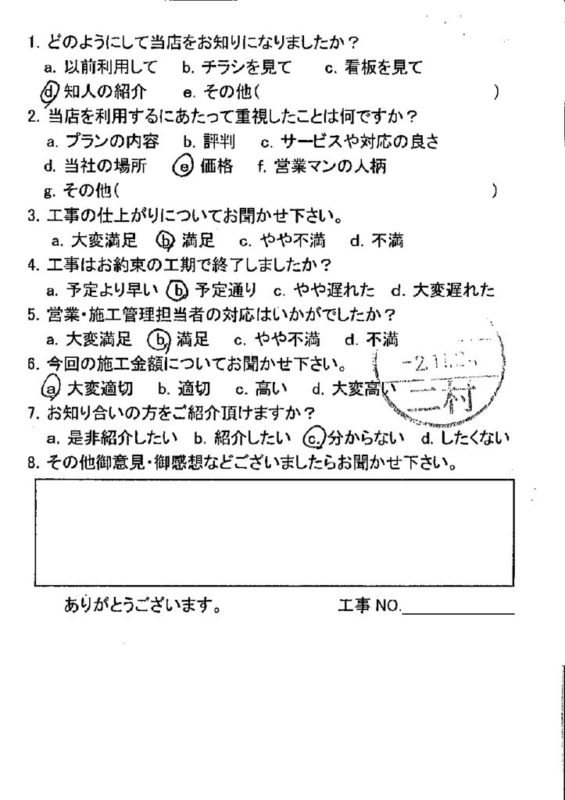 1. どのようにして当店をお知りになりましたか？
a. 以前利用して b. チラシを見て c. 看板を見て
d 知人の紹介 e. その他( )
2. 当店を利用するにあたって重視したことは何ですか？
a. プランの内容 b. 評判 c. サービスや対応の良さ
d. 当社の場所 e 価格 f. 営業マンの人柄
g. その他( )
3. 工事の仕上がりについてお聞かせ下さい。
a. 大変満足 b 満足 c. やや不満 d. 不満
4. 工事はお約束の工期で終了しましたか？
a. 予定より早い b. 予定通り c. やや遅れた d. 大変遅れた
5. 営業・施工管理担当者の対応はいかがでしたか？
a. 大変満足 b. 満足 c. やや不満 d. 不満
6. 今回の施工金額についてお聞かせ下さい。
a 大変適切 b. 適切 c. 高い d. 大変高い
二村
7. お知り合いの方をご紹介頂けますか？
a. 是非紹介したい b. 紹介したい c. 分からない d. したくない
8. その他御意見・御感想などございましたらお聞かせ下さい。
ありがとうございます。 工事 NO.